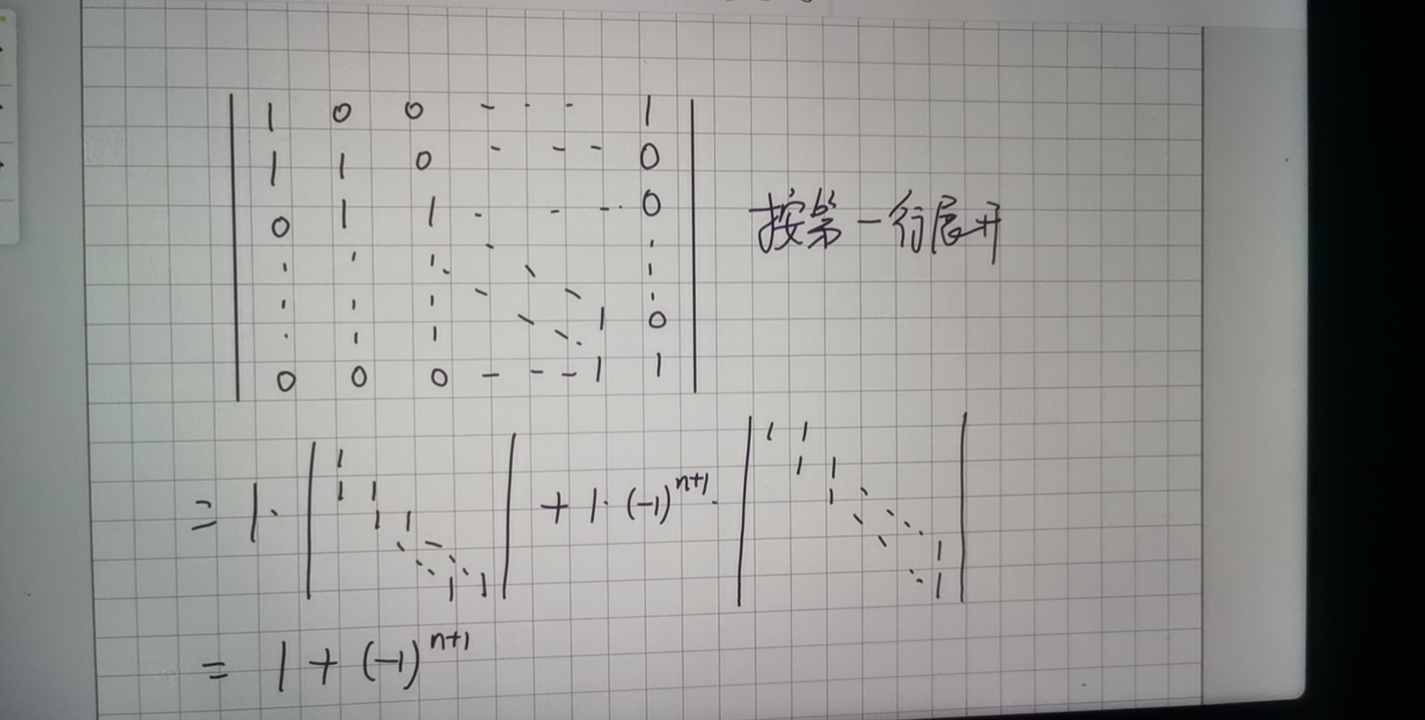 | 1 0 0 - - - 1 |
| 1 1 0 - - - 0 |
| 0 1 1 - - - 0 |
1 0
| 0 0 0 - - - 1 1 |
按第一行展开
= 1 · | 1 1 1 1 1 1 1 | + 1 · (-1)^{n+1} · | 1 1 1 1 1 1 1 |
= 1 + (-1)^{n+1}